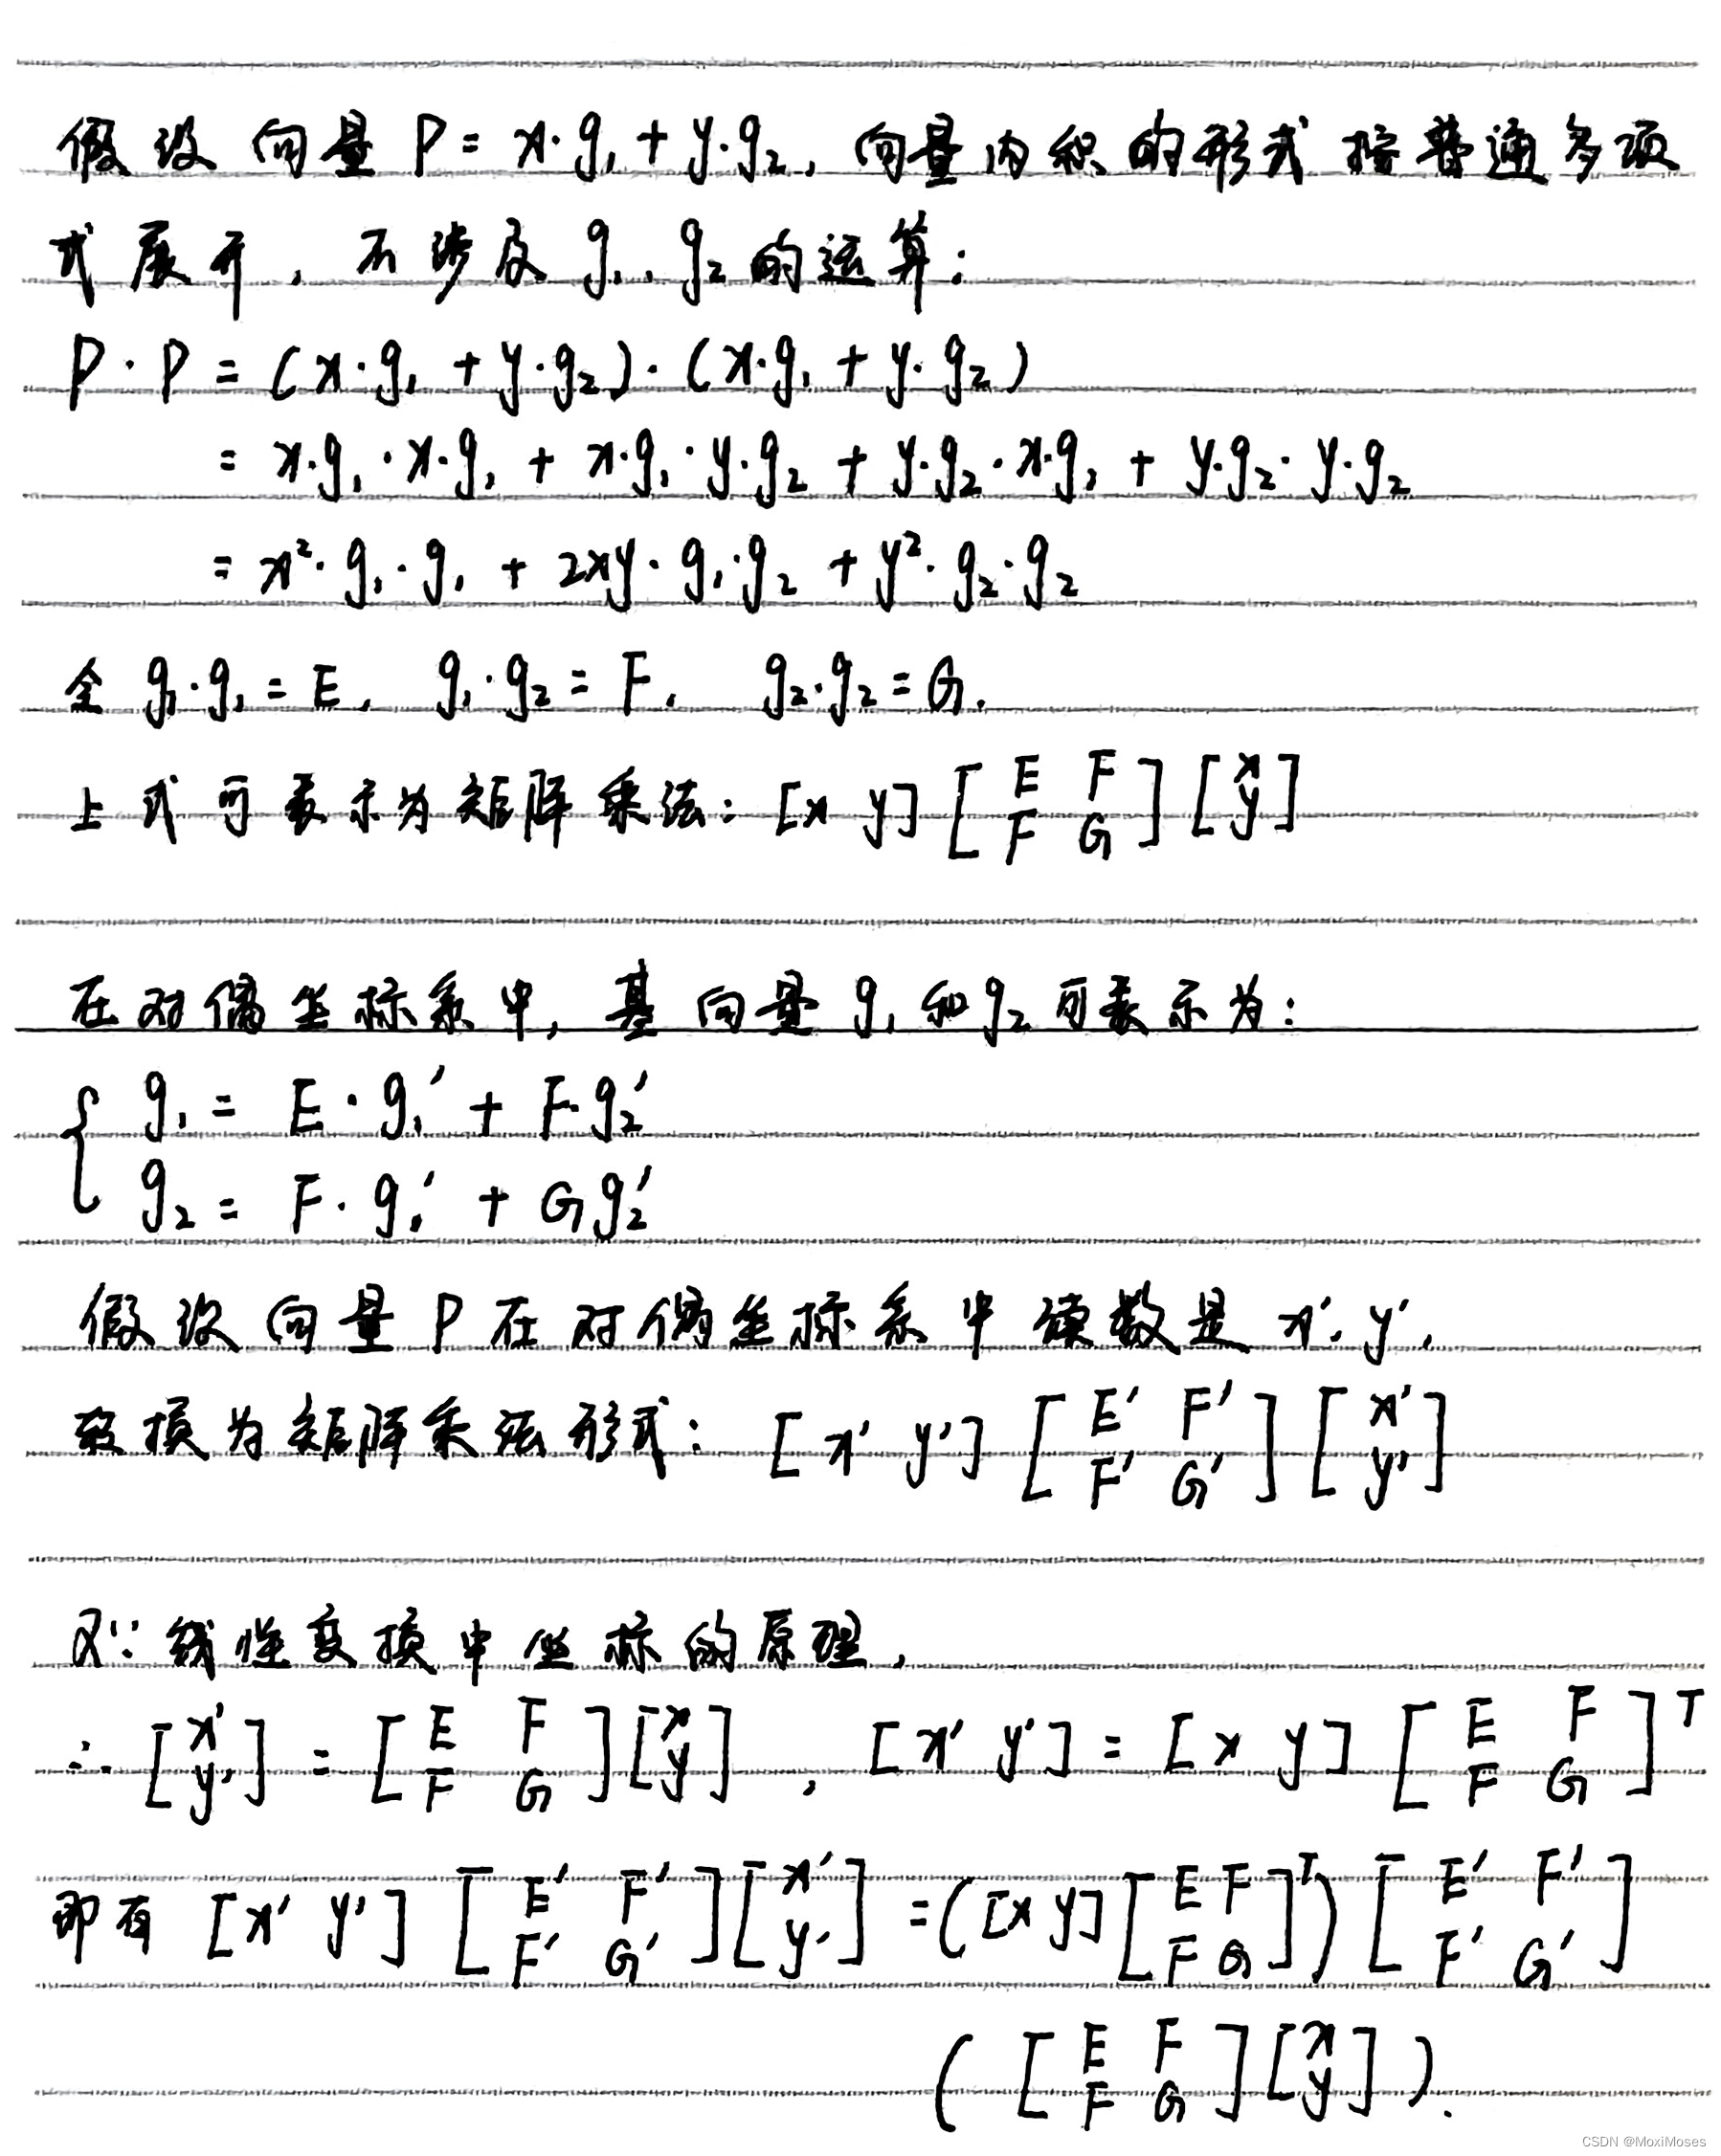 假设向量 P = x·g₁ + y·g₂, 向量内积的形式按普通多项
式展开, 不涉及 g₁、g₂ 的运算:
P·P = (x·g₁ + y·g₂)·(x·g₁ + y·g₂)
= x·g₁·x·g₁ + x·g₁·y·g₂ + y·g₂·x·g₁ + y·g₂·y·g₂
= x²·g₁·g₁ + 2xy·g₁·g₂ + y²·g₂·g₂
令 g₁·g₁ = E, g₁·g₂ = F, g₂·g₂ = G.
上式可表示为矩阵乘法: [x y] [E F; F G] [x; y]
在对偶坐标系中, 基向量 g₁ 和 g₂ 可表示为:
{ g₁ = E·g₁′ + F·g₂′
g₂ = F·g₁′ + Gg₂′
假设向量 P 在对偶坐标系中读数是 x′, y′,
转换为矩阵乘法形式: [x′ y′] [E′ F′; F′ G′] [x′; y′]
又∵ 线性变换中坐标的原理,
∴ [x′; y′] = [E F; F G] [x; y], [x′ y′] = [x y] [E F; F G]ᵀ
即有 [x′ y′] [E′ F′; F′ G′] [x′; y′] = ([x y] [E F; F G]ᵀ) [E′ F′; F′ G′]
([E F; F G] [x; y]).
CSDN @MoxiMoses